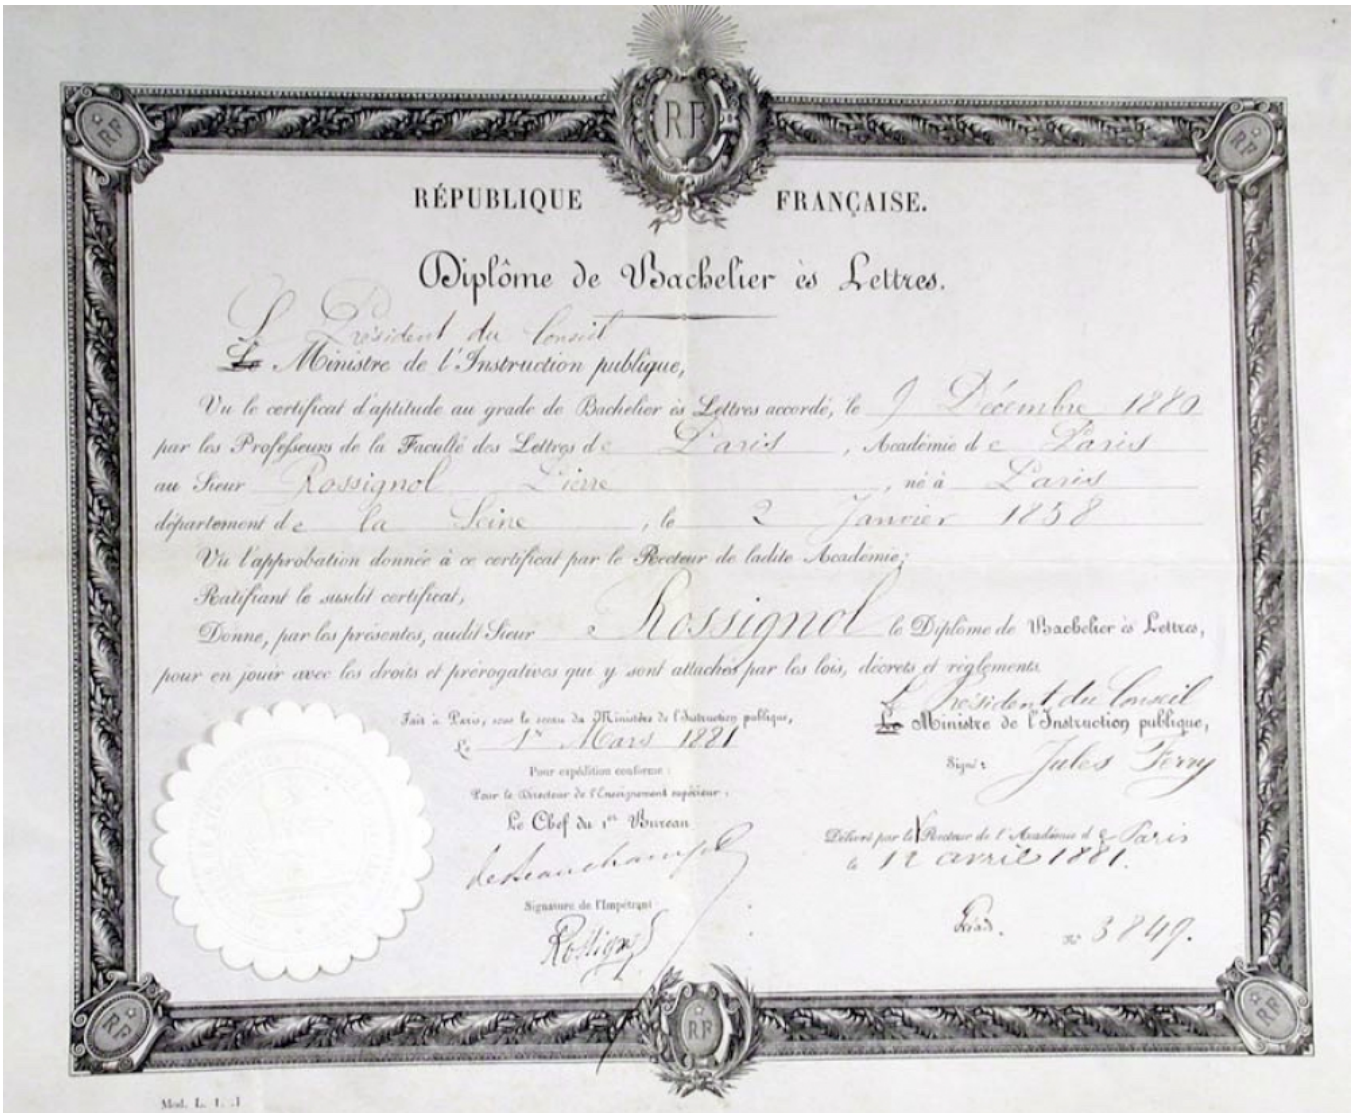 RF
RF
RF
RÉPUBLIQUE FRANÇAISE.
Diplôme de Bachelier ès Lettres.
L Président du Conseil
Le Ministre de l'Instruction publique,
Vu le certificat d'aptitude au grade de Bachelier ès Lettres accordé, le 9 Décembre 1880
par les Professeurs de la Faculté des Lettres de Paris, Académie de Paris
au Sieur Rossignol Pierre, né à Paris
département de la Seine, le 2 Janvier 1858
Vu l'approbation donnée à ce certificat par le Recteur de ladite Académie;
Ratifiant le susdit certificat,
Donne, par les présentes, audit Sieur Rossignol le Diplôme de Bachelier ès Lettres,
pour en jouir avec les droits et prérogatives qui y sont attachés par les lois, décrets et règlements.
Fait à Paris, sous le sceau du Ministère de l'Instruction publique,
Le 1er Mars 1881
Pour expédition conforme :
Pour le Directeur de l'Enseignement supérieur :
Le Chef du 1er Bureau
de Beauchamp
Signature de l'Impétrant
Rossignol
L Président du Conseil
Le Ministre de l'Instruction publique,
Signé : Jules Ferry
Délivré par le Recteur de l'Académie de Paris
le 12 avril 1881.
No 3849.
RF
RF
RF
Mod. L. 1.